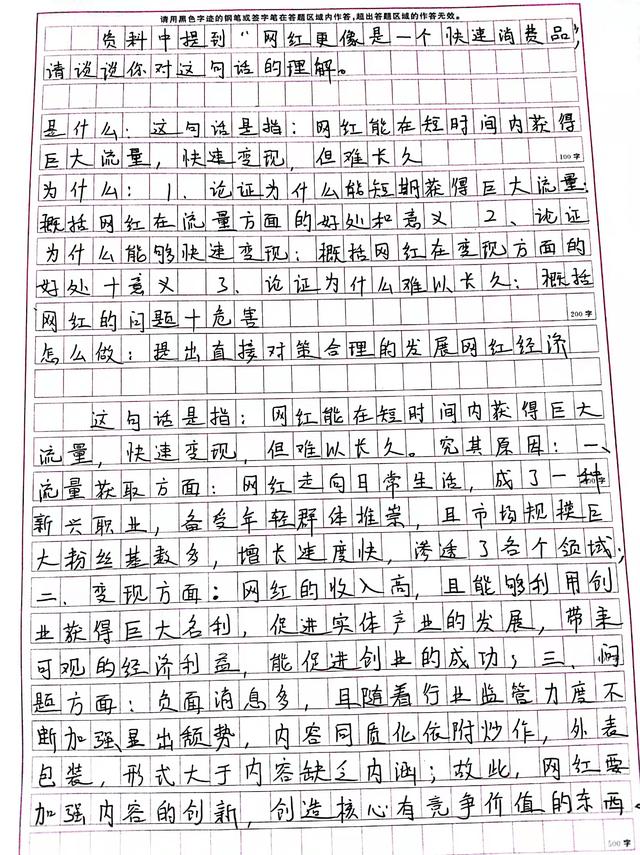 请用黑色字迹的钢笔或签字笔在答题区域内作答,超出答题区域的作答无效。
资料中提到“网红更像是一个快速消费品”,
请谈谈你对这句话的理解。
是什么:这句话是指:网红能在短时间内获得
巨大流量,快速变现,但难长久
100字
为什么:1、论证为什么能短期获得巨大流量:
概括网红在流量方面的好处和意义 2、论证
为什么能够快速变现:概括网红在变现方面的
好处+意义 3、论证为什么难以长久:概括
网红的问题+危害
200字
怎么做:提出直接对策合理的发展网红经济
这句话是指:网红能在短时间内获得巨大
流量,快速变现,但难以长久。究其原因:一、
流量获取方面:网红走向日常生活,成了一种
新兴职业,备受年轻群体推崇,且市场规模巨
大粉丝基数多,增长速度快,渗透了各个领域;
二、变现方面:网红的收入高,且能够利用创
业获得巨大名利,促进实体产业的发展,带来
可观的经济利益,能促进创业的成功;三、问
题方面:负面消息多,且随着行业监管力度不
断加强显出颓势,内容同质化依附炒作,外表
包装,形式大于内容缺乏内涵;故此,网红要
加强内容的创新,创造核心有竞争价值的东西。
500字